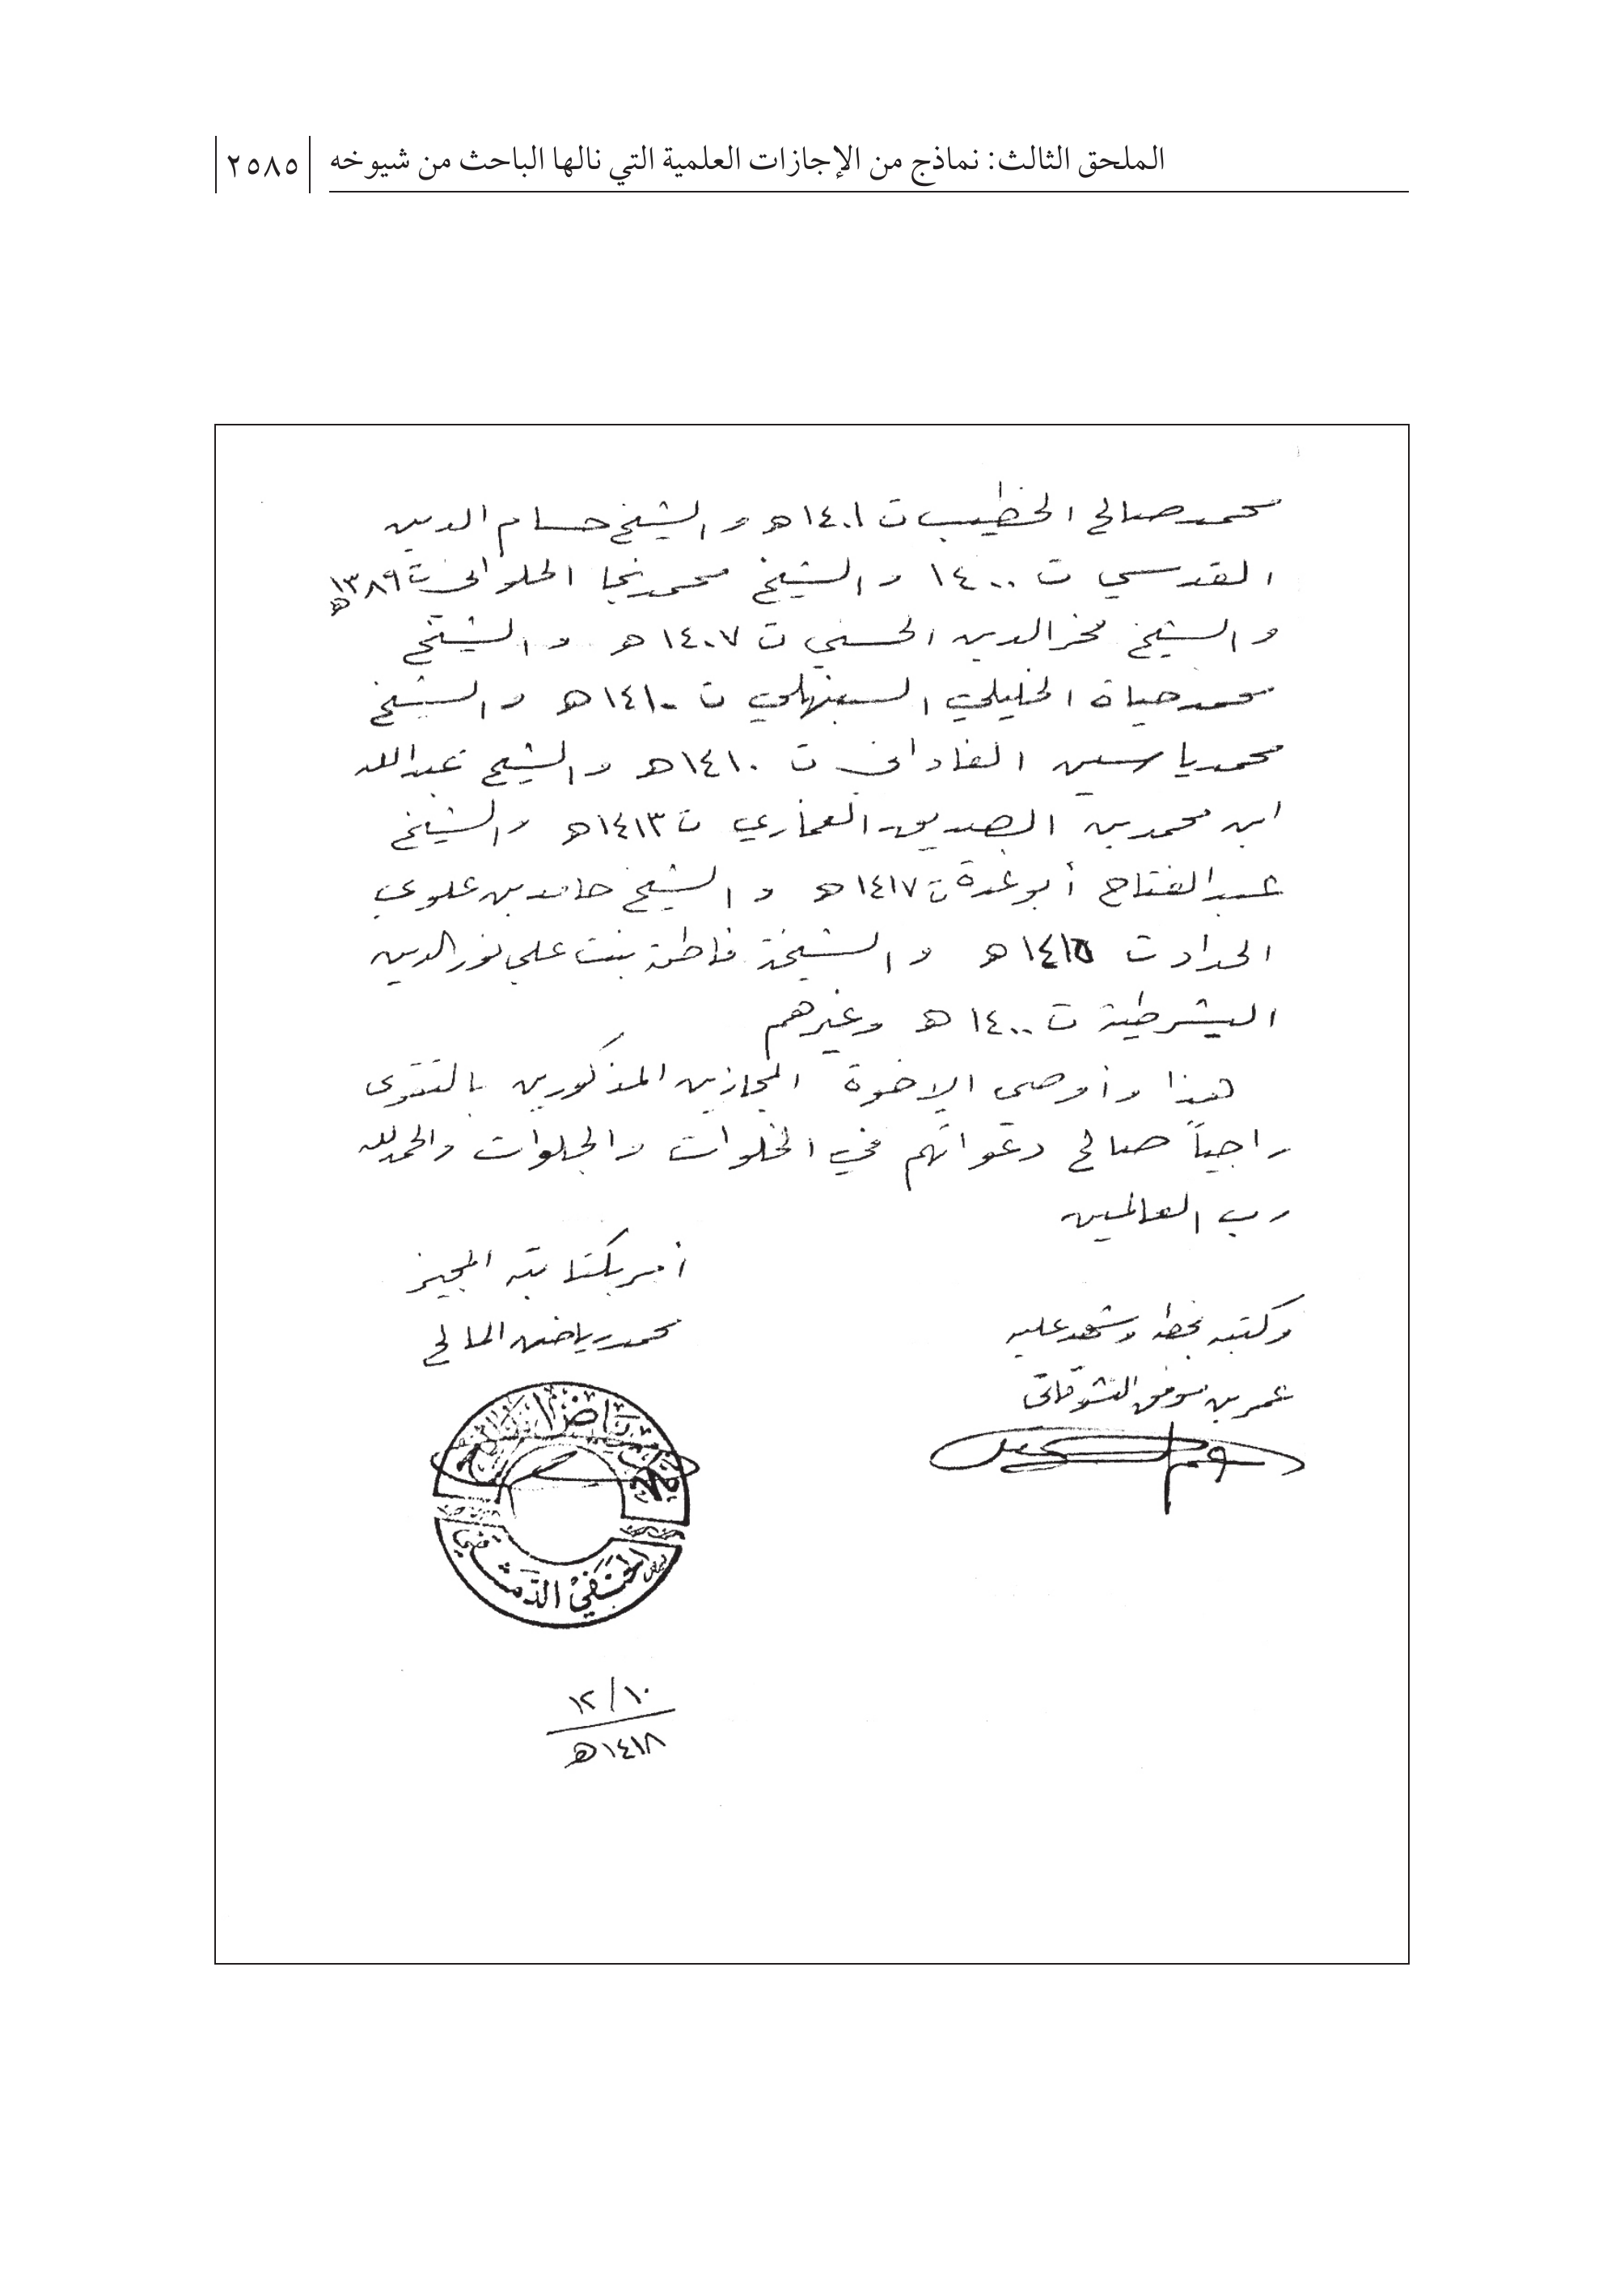 الملحق الثالث: نماذج من الإجازات العلمية التي نالها الباحث من شيوخه ٢٥٨٥
محمد صالح الخطيب ت ١٤٠١ه‍ و الشيخ حسام الدين
القدسي ت ١٤٠٠ و الشيخ محمد نجا الحلواني ت ١٣٨٩ه‍
و الشيخ فخر الدين الحسني ت ١٤٠٧ه‍ و الشيخ
محمد حياة الخليلي السبنهلي ت ١٤١٠ه‍ و الشيخ
محمد ياسين الفاداني ت ١٤١٠ه‍ و الشيخ عبد الله
ابن محمد بن الصديق الغماري ت ١٤١٣ه‍ و الشيخ
عبد الفتاح أبو غدة ت ١٤١٧ه‍ و الشيخ حامد بن علوي
الحداد ت ه‍ و الشيخة فاطمة بنت علي نور الدين
اليشرطية ت ١٤٠٠ه‍ وغيرهم
هذا وأوصي الإخوة المجازين المذكورين بالتقوى
راجياً صالح دعواتهم في الخلوات والجلوات والحمد لله
رب العالمين
أمر بكتابته المجيز
محمد رياض المالح
وكتبه بخطه وشهد عليه
عمر بن موفق النشوقاتي
رياض المالح
الحنفي الدمشقي
١٢/١٠
١٤١٨ه‍